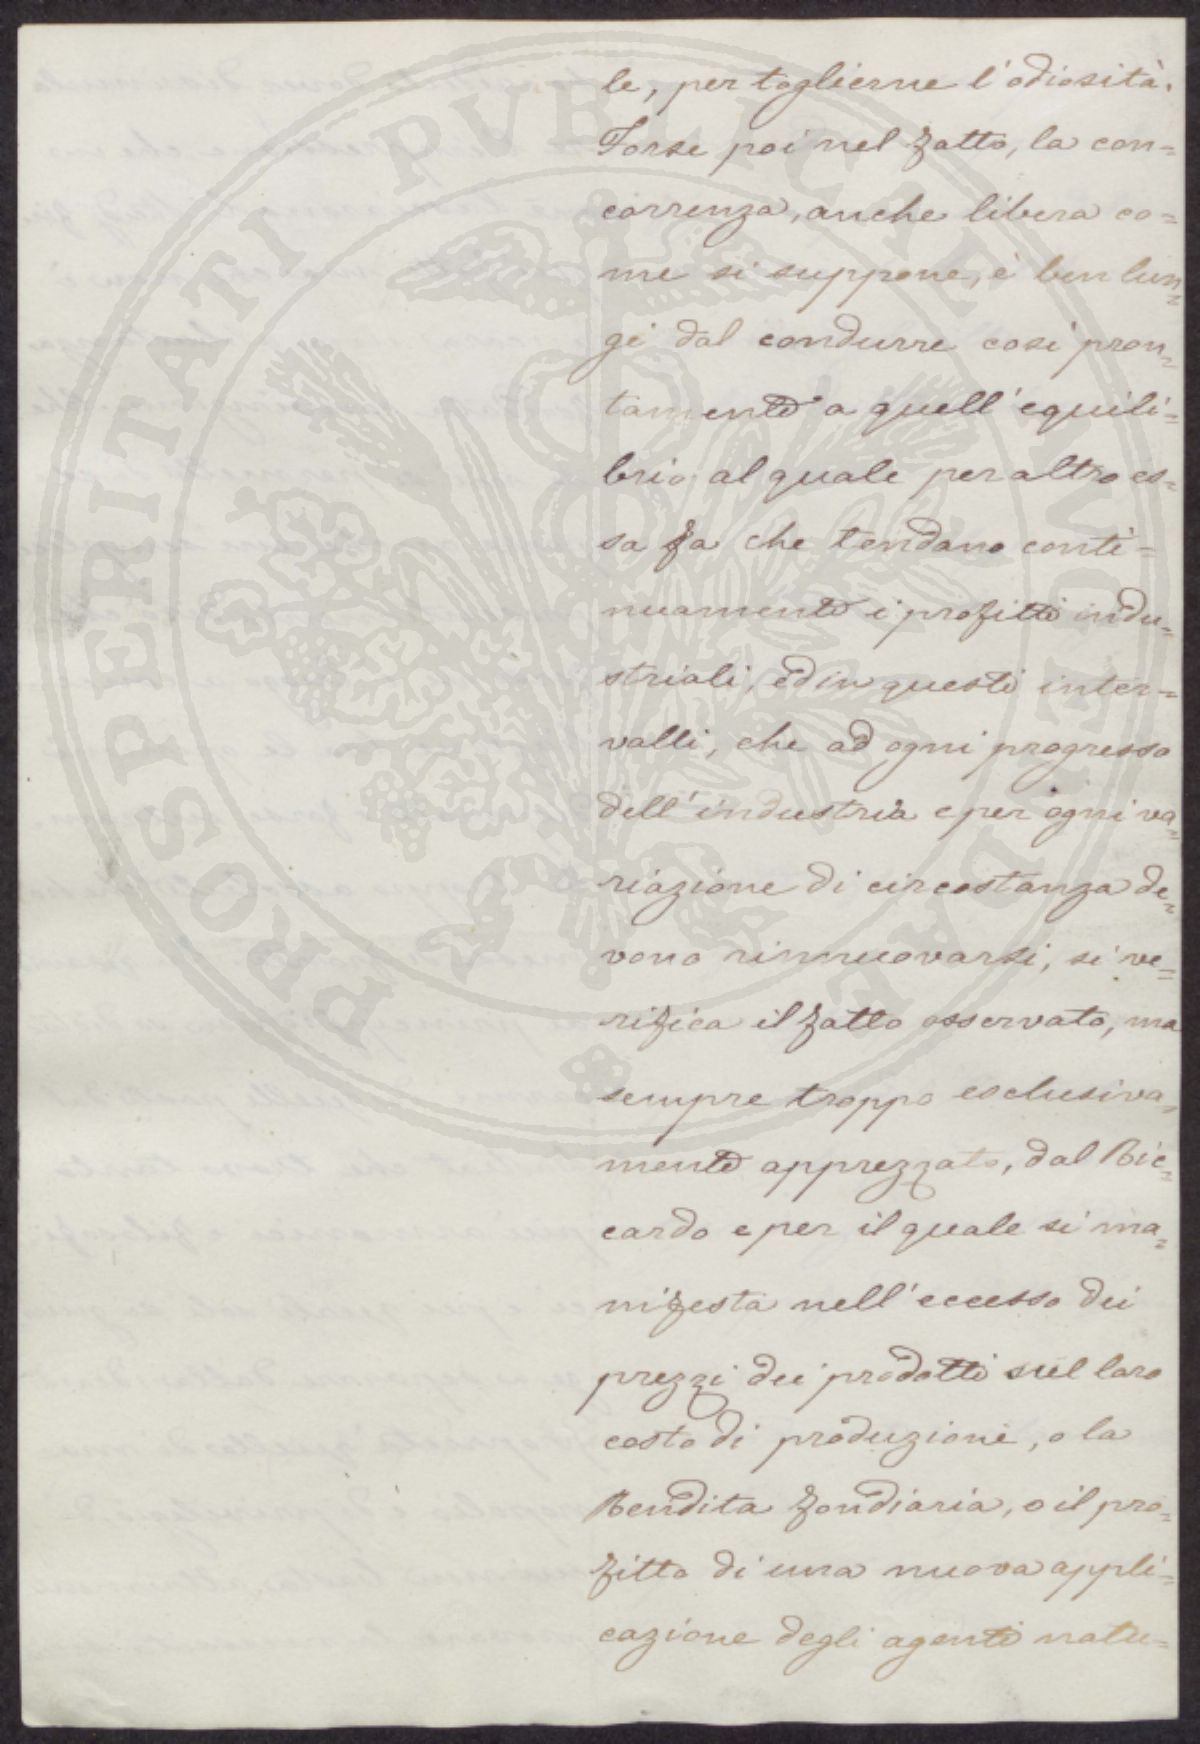 le, per toglierne l'odiosità.
Forse poi nel fatto, la con=
correnza, anche libera co=
me si suppone, è ben lun=
gi dal condurre così pron=
tamente a quell'equili=
brio al quale per altro es=
sa fa che tendano conti=
nuamente i profitti indu=
striali, ed in questi inter=
valli, che ad ogni progresso
dell'industria e per ogni va=
riazione di circostanza de=
vono rinnuovarsi, si ve=
rifica il fatto osservato, ma
sempre troppo esclusiva=
mente apprezzato, dal Ric=
cardo e per il quale si ma=
nifesta nell'eccesso dei
prezzi dei prodotti sul loro
costo di produzione, o la
Rendita fondiaria, o il pro=
fitto di una nuova appli=
cazione degli agenti natu=
PROSPERITATI PUBLICAE AUGENDAE